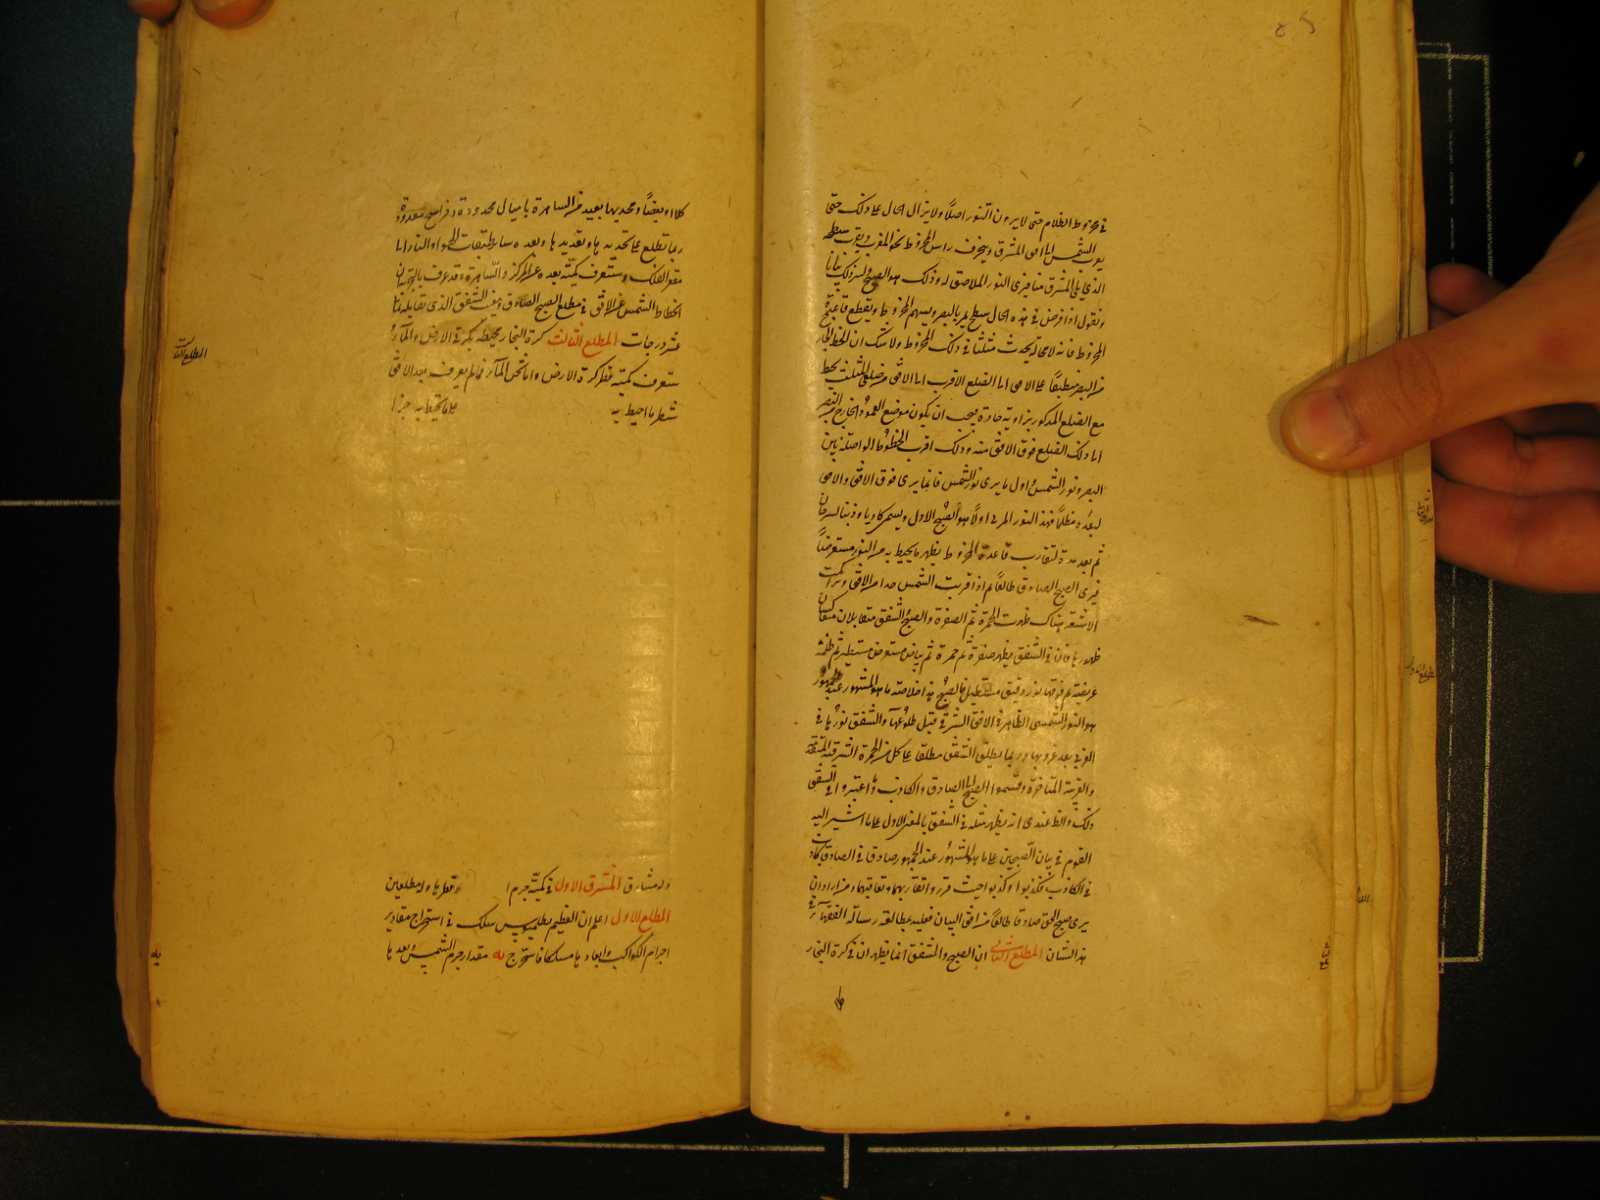 في مخروط الظلام حتى لا يرون النور اصلاً ولا يزال الحال على ذلك حتى
الشمس الى افق المشرق وينحرف راس المخروط نحو المغرب ويقرب سطحه
الذي يلي المشرق منا فيرى النور الملاصق له وذلك هو الصبح ولنزد لك بيانا
ونقول اذا فرض في هذه الحال سطح يمر بالبصر وبسهم المخروط ويقطع قاعدة
المخروط فانه لا محالة يحدث مثلثا في ذلك المخروط ولا شك ان الخط الخارج
من البصر منطبقا على الافق الى الضلع الاقرب الى الافق من ضلعي المثلث يحيط
مع الضلع المذكور بزاوية حادة فيجب ان يكون موضع العمود الخارج من البصر
الى ذلك الضلع فوق الافق منه وذلك اقرب الخطوط الواصلة بين
البصر ونور الشمس اول ما يرى نور الشمس فانما يرى فوق الافق والافق
لبعده مظلما فهذا النور المرئي اولا هو الصبح الاول ويسمى كاذبا وذنب السرحان
ثم بعد مدة لتقارب قاعدة المخروط يظهر ما يحيط به من النور مستعرضاً
فيرى الصبح الصادق طالعاً ثم اذا قربت الشمس جدا من الافق وتراكمت
الاشعة هناك ظهرت الحمرة ثم الصفرة والصبح والشفق متقابلان متعاكسان
ظهورها فان في الشفق يظهر صفرة ثم حمرة ثم بياض مستعرض مستطير ثم ظلمة
عريضة ثم فوقها نور دقيق مستطيل فالصبح هذا خلاصة ما هو المشهور عند الجمهور
هو النور الشمسي الظاهر في الافق الشرقي قبل طلوعها والشفق نورها في
الغربي بعد غروبها وربما يطلق الشفق مطلقا على كل من الحمرة الشرقية المتقدمة
والغربية المتأخرة وقسموا الصبح الى الصادق والكاذب وما اعتبروا في الشفق
ذلك والظ عندي انه يظهر مثله في الشفق بالمعنى الاول على ما اشير اليه
القوم في بيان الصبحين على ما هو المشهور عند الجمهور صادق في الصادق كاذب
في الكاذب فكذبوا وكذبوا حيث قرروا تقاربهما وتعاقبهما ومن اراد ان
يرى صبح الحق صادقا طالعاً من افق البيان فعليه بمطالعة رسالة الفقهاء في
هذا الشان المطلع الثاني ان الصبح والشفق انما يظهران في كرة البخار
كلا او بعضاً ومحدبها بعيد من الساهرة باميال محدودة وفراسخ معدودة
ربما تطلع على تحديدها وتعديدها وبعده سائر طبقات الهواء والنار الى
مقعر الفلك وستعرف كمية بعده عن المركز والساهرة وقد عرف بالتجربة ان
انحطاط الشمس عن الافق في مطلع الصبح الصادق ومغيب الشفق الذي تقابله ثمانية
عشر درجات المطلع الثالث كرة البخار محيطة بكرة الارض والماء
ستعرف كمية قطر كرة الارض واما ثخن الماء فلم يعرف بعد لا في
شطر ما احيط به على ما يحيط به جزا
المطلع الثالث
وله مشارق المشرق الاول في كمية جرم ا وقطرها وله مطلعين
المطلع الاول اعلم ان العظيم بطلميوس سلك في استخراج مقادير
اجرام الكواكب وابعادها مسلكا فاستخرج به مقدار جرم الشمس وبعدها